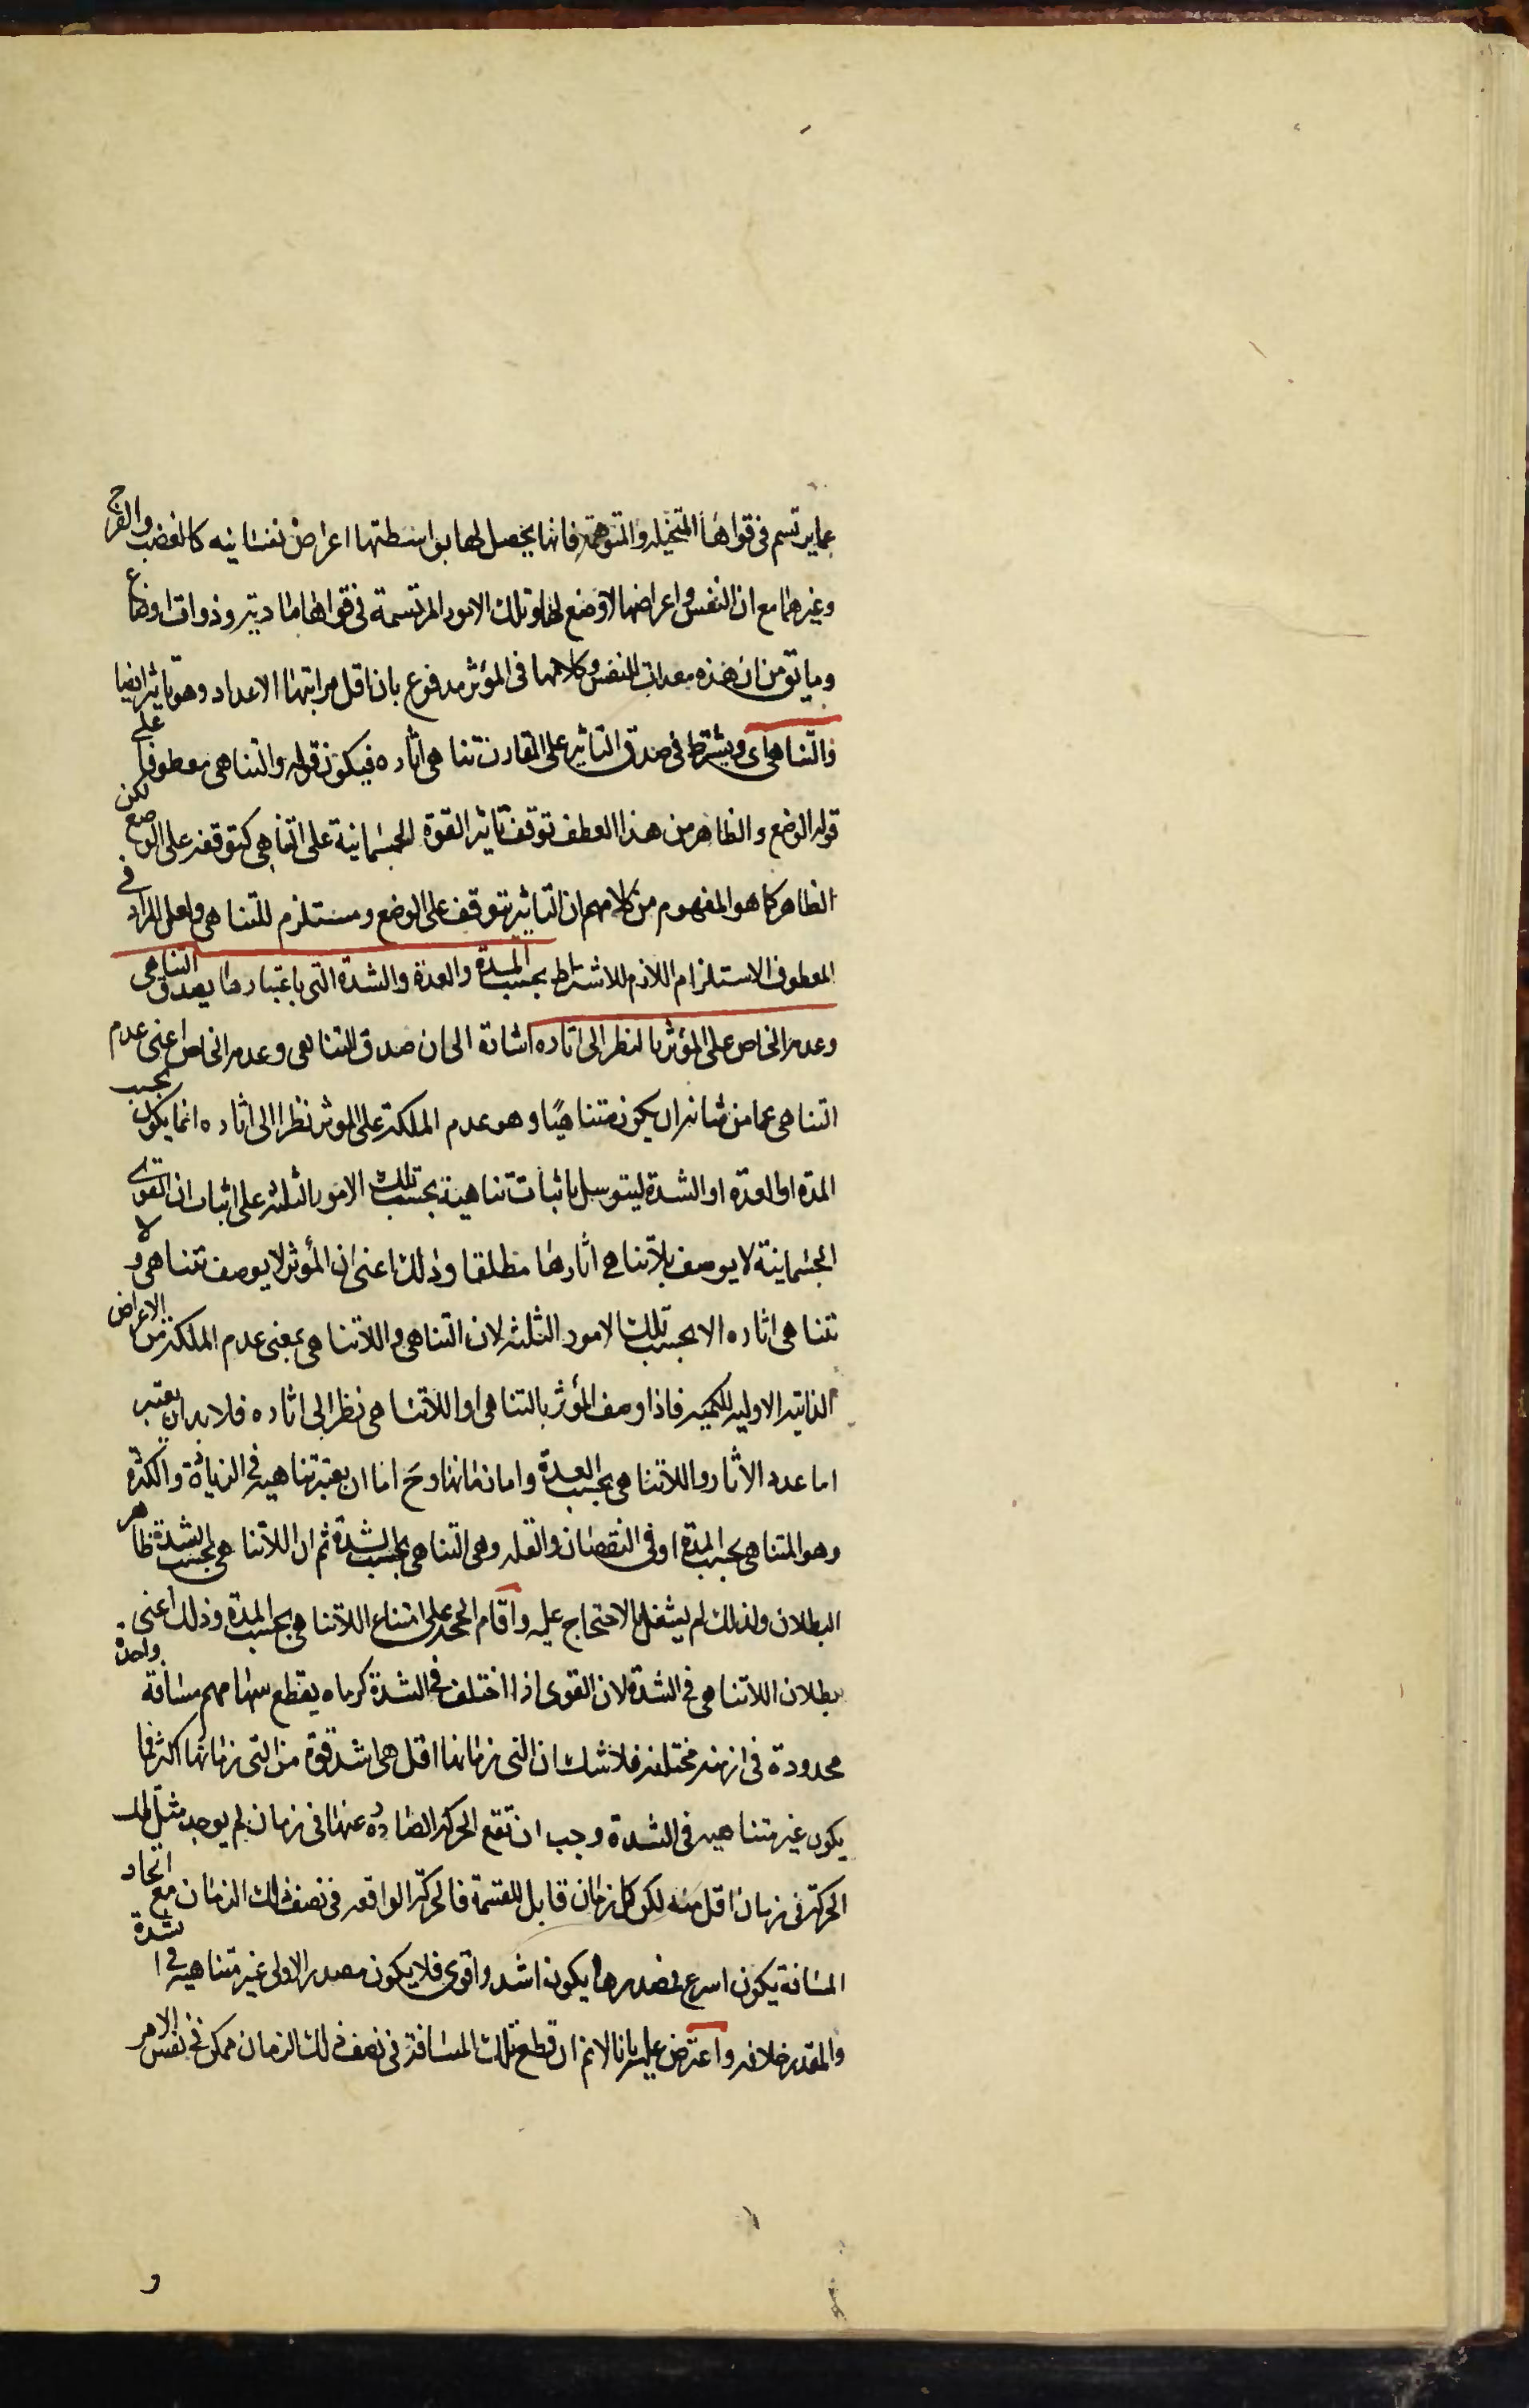 عما يرتسم فى قواها المتخيله والمتوهمة فانها يحصل لها بواسطتها اعراض نفسانيه كالغضب والفرح
وغيرهما مع ان النفس واعراضها لا وضع لها وتلك الامور المرتسمة فى قواها ماديته وذوات اوضاع
وما يق من ان هذه معدات للنفس وكلامهما فى المؤثر مدفوع بان اقل مراتبها الاعداد وهو تاثير ايضا
والتناهى اى ويشترط فى صدق التاثير على المقارن تناهى اثاره فيكون قوله والتناهى معطوفا على
قوله الوضع والظاهر من هذا العطف توقف تاثير القوة الجسمانية على التناهى كتوقفه على الوضع لكن
الظاهر كما هو المفهوم من كلامهم ان التاثير يتوقف على الوضع ومستلزم للتناهى ولعل المراد فى
المعطوف الاستلزام اللازم للاشتراط بحسب المدة والعدة والشدة التى باعتبارها يصدق التناهى
وعدمه الخاص على المؤثر بالنظر الى اثاره اشارة الى ان صدق التناهى وعدمه الخاص اعنى عدم
التناهى عما من شانه ان يكون متناهيًا وهو عدم الملكة على الموثر نظرا الى اثاره انما يكون بحسب
المدة او العدة او الشدة ليتوسل باثبات تناهية بحسب تلك الامور الثلثه على اثبات ان القوى
الجسمانية لا يوصف بلاتناهى اثارها مطلقا وذلك اعنى ان المؤثر لا يوصف بتناهى ولا
تناهى اثاره الا بحسب تلك الامور الثلثه لان التناهى واللاتناهى بمعنى عدم الملكة من الاعراض
الذاتيه الاوليه للكميه فاذا وصف المؤثر بالتناهى او اللاتناهى نظر الى اثاره فلا بد ان يعتبر
اما عدد الاثار واللاتناهى بحسب العدة واما زمانها وح اما ان يعتبر تناهيه فى الزيادة والكثرة
وهو المتناهى بحسب المدة او فى النقصان والقله وهى التناهى بحسب الشدة ثم ان اللاتناهى بحسب الشدة ظاهر
البطلان ولذلك لم يشتغل بالاحتجاج عليه واقام الحجه على امتناع اللاتناهى بحسب المدة وذلك اعنى
بطلان اللاتناهى فى الشدة لان القوى اذا اختلف فى الشدة كرماه يقطع سهامهم مسافة واحدة
محدودة فى ازمنه مختلفه فلا شك ان التى زمانها اقل هى اشد قوة من التى زمانها اكثر فما
يكون غير متناهيه فى الشدة وجب ان تقع الحركه الصادره عنها فى زمان لم يوجد مثل تلك
الحركة فى زمان اقل منه لكن كل زمان قابل للقسمة فالحركة الواقعه فى نصف ذلك الزمان مع اتحاد
المسافة يكون اسرع فمصدرها يكون اشد واقوى فلا يكون مصدر الاولى غير متناهيه فى الشدة
والمقدر خلافه واعترض عليه بانا لانم ان قطع تلك المسافة فى نصف ذلك الزمان ممكن فى نفس الامر
و